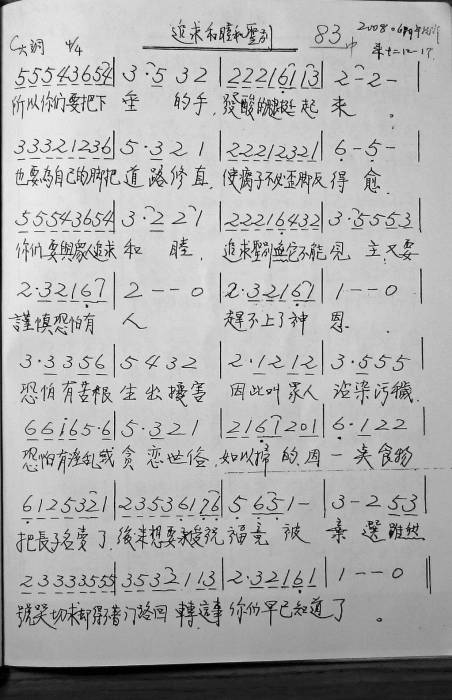 追求和睦和聖別 83
C大調 4/4
5 5 5 4 3 6 5 4 | 3 · 5 3 2 | 2 2 2 1 6 1 1 3 | 2 - 2 - |
所以你們要把下垂的手,發酸的腿挺起來。
3 3 3 2 1 2 3 6 | 5 · 3 2 1 | 2 2 2 1 2 3 2 1 | 6 - 5 - |
也要為自己的脚把道路修直,使瘸子不致歪脚反得愈。
5 5 5 4 3 6 5 4 | 3 · 2 2 1 | 2 2 2 1 6 4 3 2 | 3 · 5 5 5 3 |
你們要與眾人追求和睦,追求聖別無它不能見主又要
2 · 3 2 1 6 7 | 2 - - 0 | 2 · 3 2 1 6 7 | 1 - - 0 |
謹慎恐怕有人趕不上了神恩。
3 · 3 3 5 6 | 5 4 3 2 | 2 · 1 2 1 2 | 3 · 5 5 5 |
恐怕有苦根生出擾害因此叫眾人沾染污穢
6 6 i 6 5 · 6 | 5 · 3 2 1 | 2 1 6 7 2 0 1 | 6 · 1 2 2 |
恐怕有淫乱或貪恋世俗,如以掃的,因一点食物
6 1 2 5 3 2 1 | 2 3 5 3 6 1 7 6 | 5 6 5 1 - | 3 - 2 5 3 |
把長子名賣了,後來想要承受祝福竟被棄選雖然
2 3 3 3 3 5 5 5 | 3 5 3 2 1 1 3 | 2 · 3 2 1 6 1 | 1 - - 0 ‖
號哭切求却得不着門路回轉這事你们早已知道了。